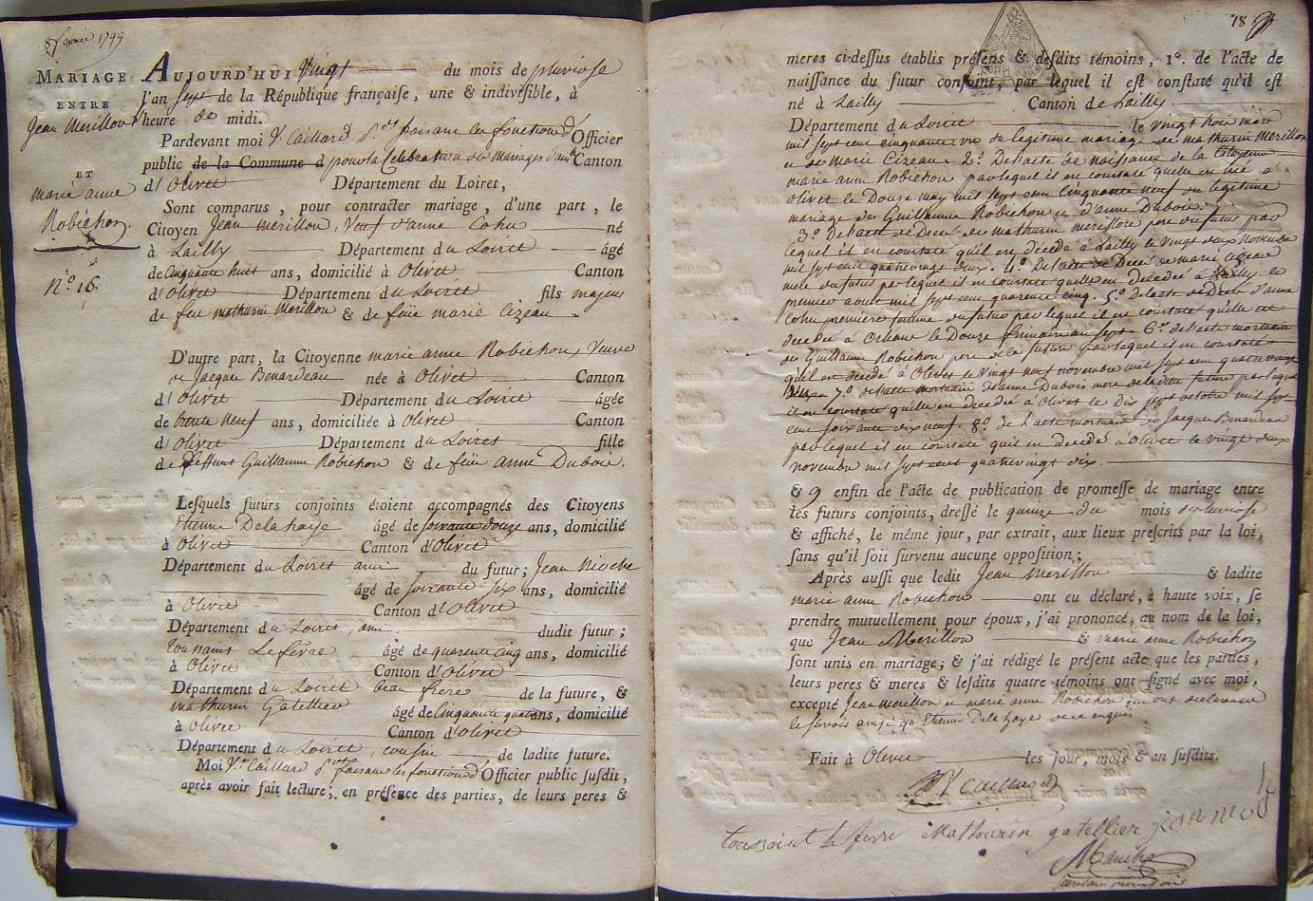 MARIAGE
ENTRE
Jean Merillon
ET
marie anne
Robichon
n.º 16.
AUJOURD'HUI Vingt du mois de pluviose
l'an sept de la République françaife, une & indivifible, à
heure de midi.
Pardevant moi Caillard faisant les fonctions d' Officier
public de la Commune d pour la Celebration des mariages dans Canton
d'Olivet Département du Loiret,
Sont comparus, pour contracter mariage, d'une part, le
Citoyen Jean merillon, Veuf d'anne Cohu né
à Lailly Département du Loiret âgé
de Cinquante huit ans, domicilié à Olivet Canton
d'Olivet Département du Loiret fils majeur
de feu mathurin Merillon & de feüe marie Cizeau.
D'autre part, la Citoyenne marie anne Robichon, Veuve
de Jacques Benardeau née à Olivet Canton
d'Olivet Département du Loiret âgée
de trente neuf ans, domiciliée à Olivet Canton
d'Olivet Département du Loiret fille
de deffunt Guillaume Robichon & de feüe anne Dubois.
Lefquels futurs conjoints étoient accompagnés des Citoyens
Etienne Delahaye âgé de soixante douze ans, domicilié
à Olivet Canton d'Olivet
Département du Loiret ami du futur; Jean
âgé de soixante six ans, domicilié
à Olivet Canton d'Olivet
Département du Loiret, ami dudit futur;
toussaint Lefevre âgé de quarente cinq ans, domicilié
à Olivet Canton d'Olivet
Département du Loiret beau frere de la future, &
mathurin Gatellier âgé de Cinquante quatre ans, domicilié
à Olivet Canton d'Olivet
Département du Loiret, cousin de ladite future.
Moi Caillard faisant les fonctions d' Officier public fufdit,
après avoir fait lecture; en préfence des parties, de leurs peres &
78
meres ci-deffus établis préfens & defdits témoins, 1º. de l'acte de
naiffance du futur conjoint, par lequel il eft conftaté qu'il eft
né à Lailly Canton de Lailly
Département du Loiret le vingt trois mars
mil sept cent quarante un de legitime mariage de mathurin Merillon
et de marie Cizeau. 2.º De l'acte de naissance de la Citoyenne
marie anne Robichon par lequel il est constaté quelle est née a
olivet le Douze may mil sept cent Cinquante neuf du legitime
mariage de Guillaume Robichon et d'anne Dubois.
3.º De l'acte de Deces de mathurin merillon pere du futur par
lequel il est constaté qu'il est decedé a Lailly le vingt deux novembre
mil sept cent quatrevingt deux. 4.º De l'acte de Deces de marie Cizeau
mere du futur par lequel il est constaté quelle est decedée a Lailly le
premier aoust mil sept cent quarente cinq. 5.º De l'acte de Deces d'anne
Cohu premiere femme du futur par lequel il est constaté quelle est
decedée a Orleans le Douze frimaire an sept. 6.º de l'acte mortuaire
de Guillaume Robichon pere de la future par lequel il est constaté
quil est decedé a Olivet le vingt neuf novembre mil sept cent quatrevingt
7.º de l'acte mortuaire d'anne Dubois mere de ladite future par lequel
il est constaté quelle est decedée a Olivet le Dix sept octobre mil sept
cent soixante dix neuf. 8.º de l'acte mortuaire de Jacques Benardeau
par lequel il est constaté quil est decedé a Olivet le vingt deux
novembre mil sept cent quatrevingt dix.
& 9 enfin de l'acte de publication de promeffe de mariage entre
les futurs conjoints, dreffé le quinze du mois de pluviose
& affiché, le même jour, par extrait, aux lieux prefcrits par la loi,
fans qu'il foit furvenu aucune oppofition;
Après auffi que ledit Jean Merillon & ladite
marie anne Robichon ont eu déclaré, à haute voix, fe
prendre mutuellement pour époux, j'ai prononcé, au nom de la loi,
que Jean Merillon & marie anne Robichon
font unis en mariage; & j'ai rédigé le préfent acte que les parties,
leurs peres & meres & lefdits quatre témoins ont figné avec moi,
excepté Jean merillon et marie anne Robichon qui ont declaré ne
le savoir ainsi qu'Etienne Delahaye de ce enquis
Fait à Olivet les jour, mois & an fufdits.
Caillard
toussaint le fevre Mathurin gatellier